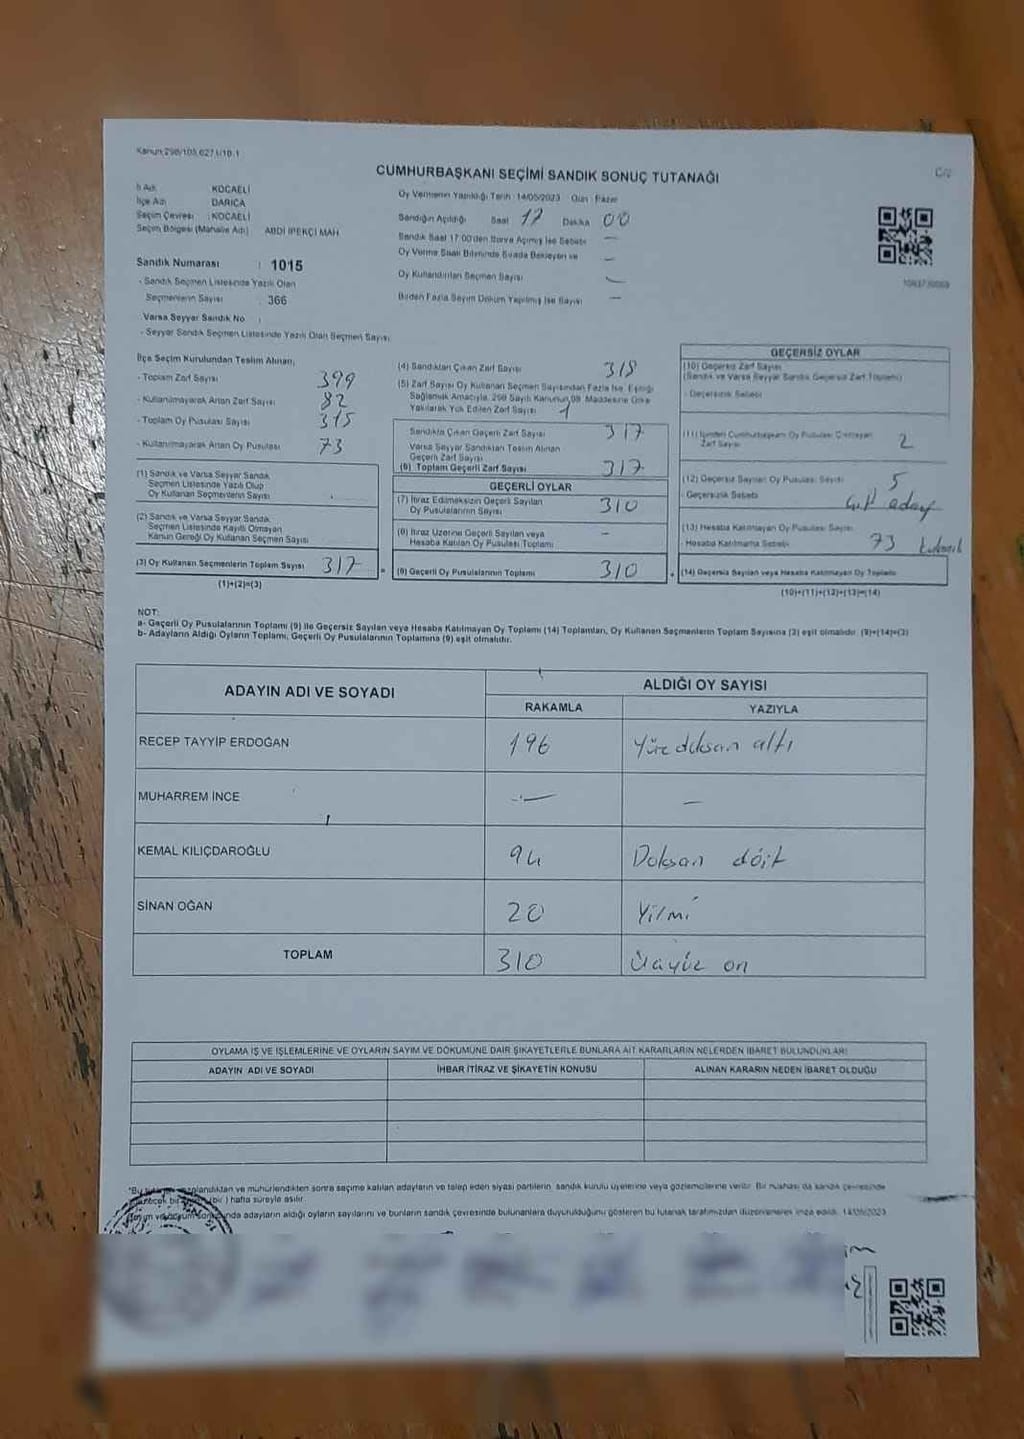 Kanun:298/105,6271/10.1
CUMHURBAŞKANI SEÇİMİ SANDIK SONUÇ TUTANAĞI
İl Adı KOCAELİ
İlçe Adı DARICA
Seçim Çevresi : KOCAELİ
Seçim Bölgesi (Mahalle Adı) ABDİ İPEKÇİ MAH
Oy Vermenin Yapıldığı Tarih :14/05/2023 Gün : Pazar
Sandığın Açıldığı Saat 17 Dakika 00
Sandık Saat 17:00'den Sonra Açılmış İse Sebebi —
Oy Verme Saati Bitiminde Sırada Bekleyen ve —
Oy Kullandırılan Seçmen Sayısı —
Birden Fazla Sayım Döküm Yapılmış İse Sayısı —
Sandık Numarası : 1015
- Sandık Seçmen Listesinde Yazılı Olan
Seçmenlerin Sayısı : 366
Varsa Seyyar Sandık No :
- Seyyar Sandık Seçmen Listesinde Yazılı Olan Seçmen Sayısı
İlçe Seçim Kurulundan Teslim Alınan;
- Toplam Zarf Sayısı 399
- Kullanılmayarak Artan Zarf Sayısı 82
- Toplam Oy Pusulası Sayısı
- Kullanılmayarak Artan Oy Pusulası 73
(1) Sandık ve Varsa Seyyar Sandık
Seçmen Listesinde Yazılı Olup
Oy Kullanan Seçmenlerin Sayısı
(2) Sandık ve Varsa Seyyar Sandık
Seçmen Listesinde Kayıtlı Olmayan
Kanun Gereği Oy Kullanan Seçmen Sayısı
(3) Oy Kullanan Seçmenlerin Toplam Sayısı 317
(1)+(2)=(3)
(4) Sandıktan Çıkan Zarf Sayısı 318
(5) Zarf Sayısı Oy Kullanan Seçmen Sayısından Fazla İse, Eşitliği
Sağlamak Amacıyla, 298 Sayılı Kanunun 98. Maddesine Göre
Yakılarak Yok Edilen Zarf Sayısı 1
Sandıkta Çıkan Geçerli Zarf Sayısı 317
Varsa Seyyar Sandıktan Teslim Alınan
Geçerli Zarf Sayısı
(6) Toplam Geçerli Zarf Sayısı 317
GEÇERLİ OYLAR
(7) İtiraz Edilmeksizin Geçerli Sayılan
Oy Pusulalarının Sayısı 310
(8) İtiraz Üzerine Geçerli Sayılan veya
Hesaba Katılan Oy Pusulası Toplamı —
(9) Geçerli Oy Pusulalarının Toplamı 310
GEÇERSİZ OYLAR
(10) Geçersiz Zarf Sayısı
(Sandık ve Varsa Seyyar Sandık Geçersiz Zarf Toplamı)
- Geçersizlik Sebebi
(11) İçinden Cumhurbaşkanı Oy Pusulası Çıkmayan
Zarf Sayısı 2
(12) Geçersiz Sayılan Oy Pusulası Sayısı 5
- Geçersizlik Sebebi
(13) Hesaba Katılmayan Oy Pusulası Sayısı
- Hesaba Katılmama Sebebi 73
(14) Geçersiz Sayılan veya Hesaba Katılmayan Oy Toplamı
(10)+(11)+(12)+(13)=(14)
NOT:
a- Geçerli Oy Pusulalarının Toplamı (9) ile Geçersiz Sayılan veya Hesaba Katılmayan Oy Toplamı (14) Toplamları, Oy Kullanan Seçmenlerin Toplam Sayısına (3) eşit olmalıdır. (9)+(14)=(3)
b- Adayların Aldığı Oyların Toplamı, Geçerli Oy Pusulalarının Toplamına (9) eşit olmalıdır.
ADAYIN ADI VE SOYADI ALDIĞI OY SAYISI
RAKAMLA YAZIYLA
RECEP TAYYİP ERDOĞAN 196 Yüz doksan altı
MUHARREM İNCE — —
KEMAL KILIÇDAROĞLU 94 Doksan dört
SİNAN OĞAN 20 Yirmi
TOPLAM 310 Üçyüz on
OYLAMA İŞ VE İŞLEMLERİNE VE OYLARIN SAYIM VE DÖKÜMÜNE DAİR ŞİKAYETLERLE BUNLARA AİT KARARLARIN NELERDEN İBARET BULUNDUKLARI
ADAYIN ADI VE SOYADI İHBAR İTİRAZ VE ŞİKAYETİN KONUSU ALINAN KARARIN NEDEN İBARET OLDUĞU
sonra seçime katılan adayların ve talep eden siyasi partilerin sandık kurulu üyelerine veya gözlemcilerine verilir. Bir nüshası da sandık çevresinde
hafta süreyle asılır.
adayların aldığı oyların sayılarını ve bunların sandık çevresinde bulunanlara duyurulduğunu gösteren bu tutanak tarafımızdan düzenlenerek imza edildi. 14/05/2023